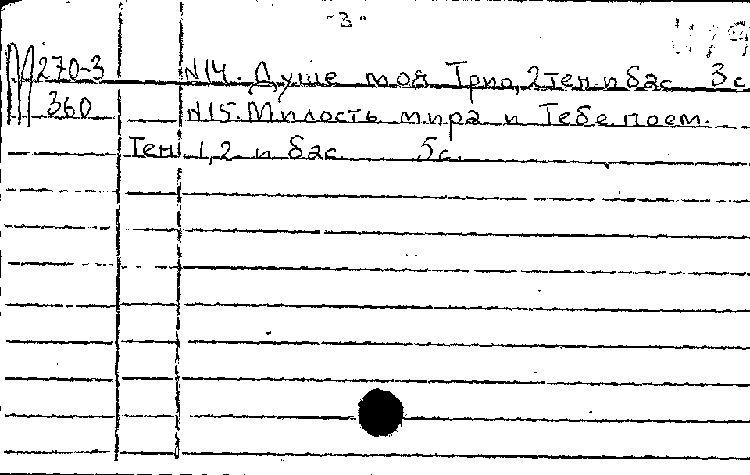 -3-
270-3 N14. Душе моя Трио, 2 тен. и бас 3 с
360 N15. Милость мира и Тебе поем.
Тен. 1, 2 и бас 5 с.